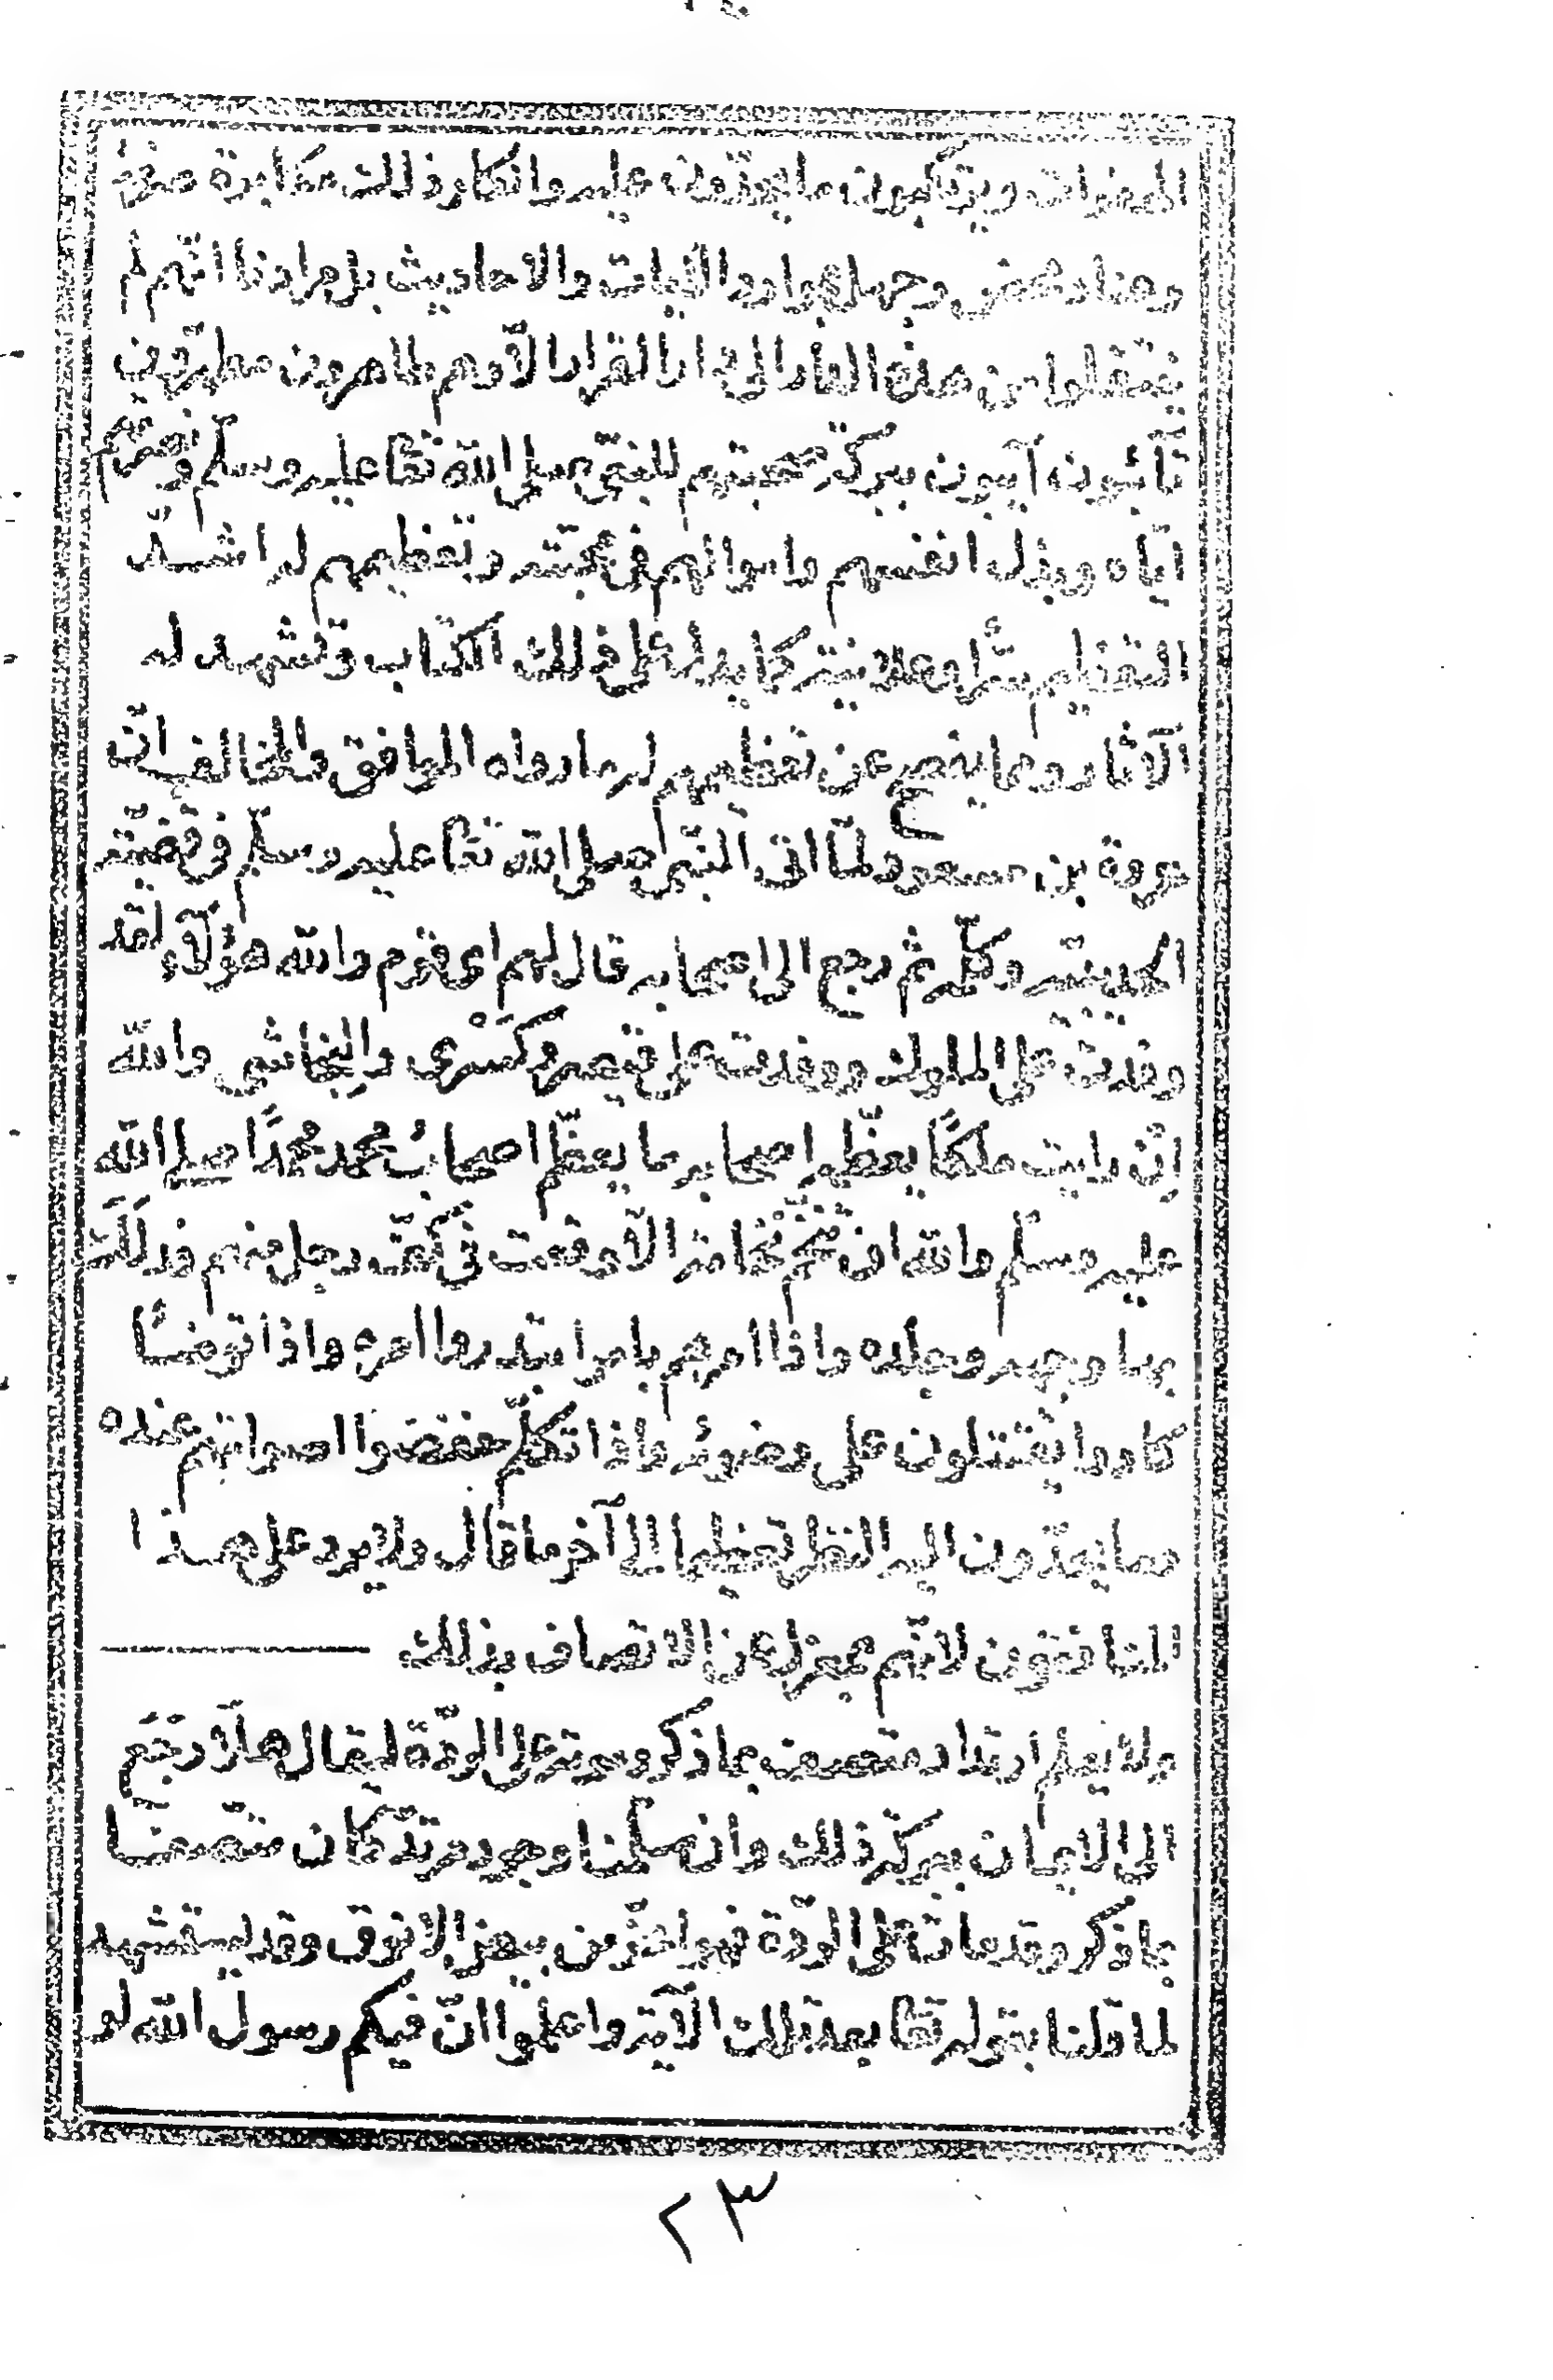 الهفوات ويرتكبون ما يعزّرون عليه وانكار ذلك مكابرة صرفة
وعناد محض وجهل بموارد الآيات والاحاديث بل مرادنا انّهم لم
ينتقلوا من هذه الدار الى دار القرار الّا وهم طاهرون مطهّرون
تائبون آيبون ببركة صحبتهم للنبيّ صلى الله تعا عليه وسلّم ونصرتهم
ايّاه وبذل انفسهم واموالهم في محبّته وتعظيمهم له اشدّ
التعظيم سرّا وعلانية كما يدلّ على ذلك الكتاب وتشهد له
الآثار ومما يفصح عن تعظيمهم له ما رواه الموافق والمخالف انّه
عروة بن مسعود لمّا اتى النبّي صلى الله تعا عليه وسلّم في قضيّة
الحديبيّة وكلّمه ثم رجع الى اصحابه قال لهم اى قوم والله هؤلآء لقد
وفدت على الملوك ووفدت على قيصر وكسْرى والنجاشى والله
إنْ رايت ملكًا يعظّمه اصحابه ما يعظّم اصحابُ محمد محمدًا صلى الله
عليه وسلّم والله ان تنخّم نخامة الّا وقعت في كفّ رجل منهم فدلك
بها وجهه وجلده واذا امرهم بامر ابتدروا امره واذا توضّأ
كادوا يقتتلون على وضوئه واذا تكلّم خفضوا اصواتهم عنده
وما يحدّون اليه النظر تعظيما الى آخر ما قال ولا يرد على هذا
المنافقون لانّهم بمعزل عن الاتصاف بذلك
ولا يعلم ارتداد متصف بما ذكر وموته على الردّة ليقال هلّا رجع
الى الايمان ببركة ذلك وان سلّمنا وجود مرتدّ كان متّصفا
بما ذكر وقد مات على الردّة فهو اعزّ من بيض الانوق وقد يستشهد
لما قلنا بقوله تعا بعد تلك الآية واعلموا انّ فيكم رسول الله لو
٢٣